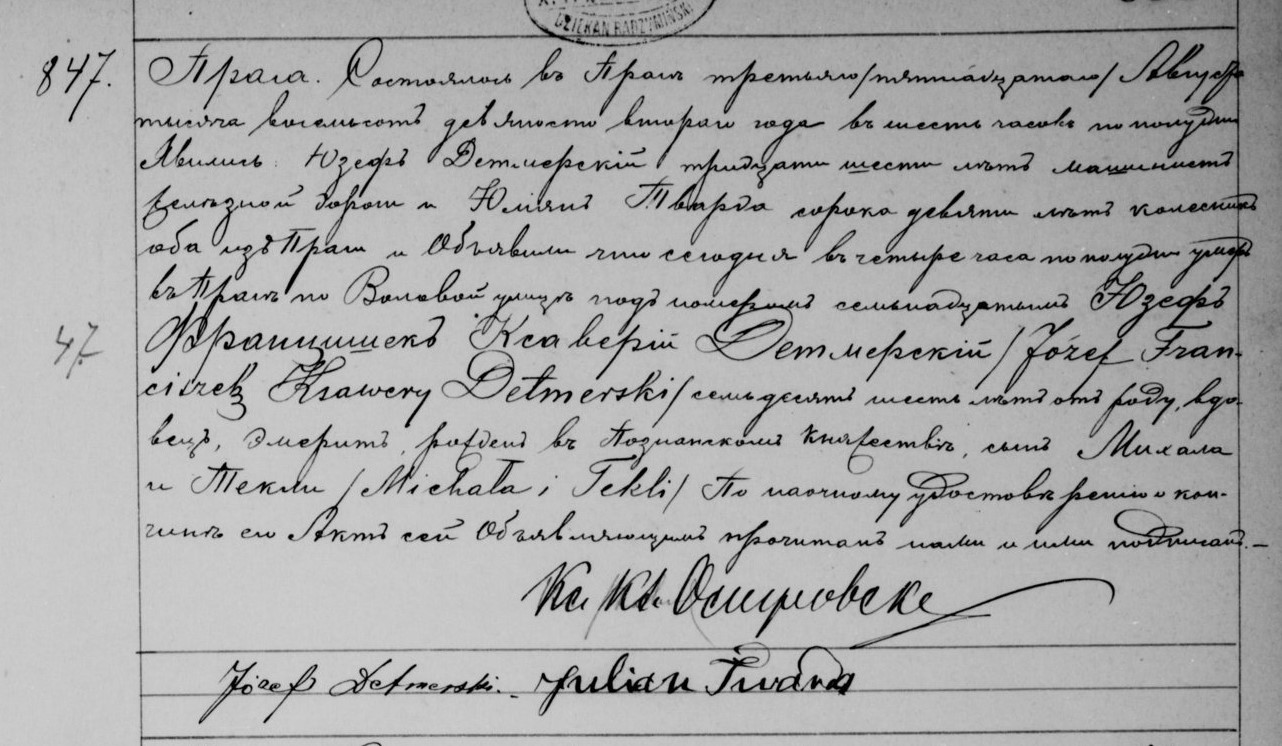 DZIEKAN RADZYMIŃSKI
847. Прага. Состоялось въ Праге третьяго /пятнадцатаго/ Августа
тысяча восемьсотъ девяносто втораго года въ шесть часовъ по полудни
Явились: Юзефъ Детмерскій тридцати шести летъ машинистъ
железной дороги и Юліянъ Тварда сорока девяти летъ колесникъ
оба изъ Праги и Объявили что сегодня въ четыре часа по полудни умеръ
въ Праге по Воловой улице подъ номеромъ семьнадцатымъ Юзефъ
47. Францишекъ Ксаверій Детмерскій /Józef Fran-
ciszek Ksawery Detmerski/ семьдесятъ шесть летъ отъ роду, вдо-
вецъ, эмеритъ, рожденъ въ Познанскомъ Княжестве, сынъ Михала
и Текли /Michała i Tekli/ По наочному удостоверению о кон-
чине его Актъ сей Объявляющимъ прочитанъ нами и ими подписанъ.-
Кс
Józef Detmerski. Julian Twarda